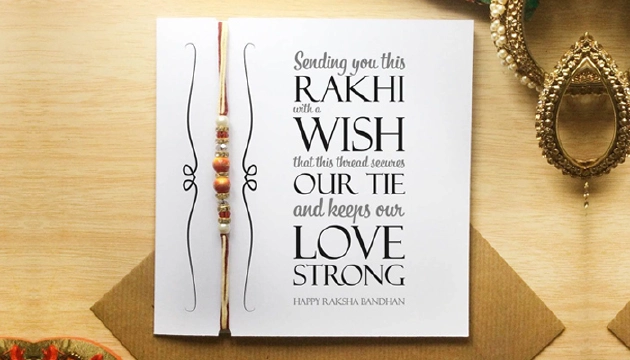 Sending you this
RAKHI
with a
WISH
that this thread secures
OUR TIE
and keeps our
LOVE
STRONG
HAPPY RAKSHA BANDHAN